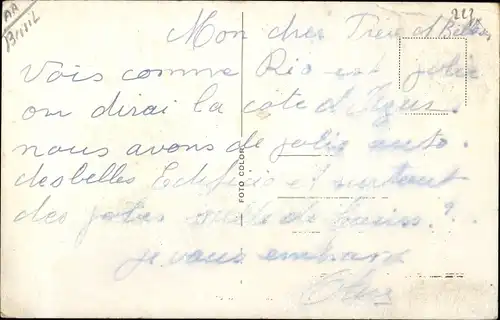 AA
Brésil
223
Mon cher Frere et Belle
Vois comme Rio est jolie
on dirai la cote d'Azur.
nous avons de jolie auto.
des belles Edificio et surtout
des jolies de bains.?
je vous embrass
FOTO COLOR